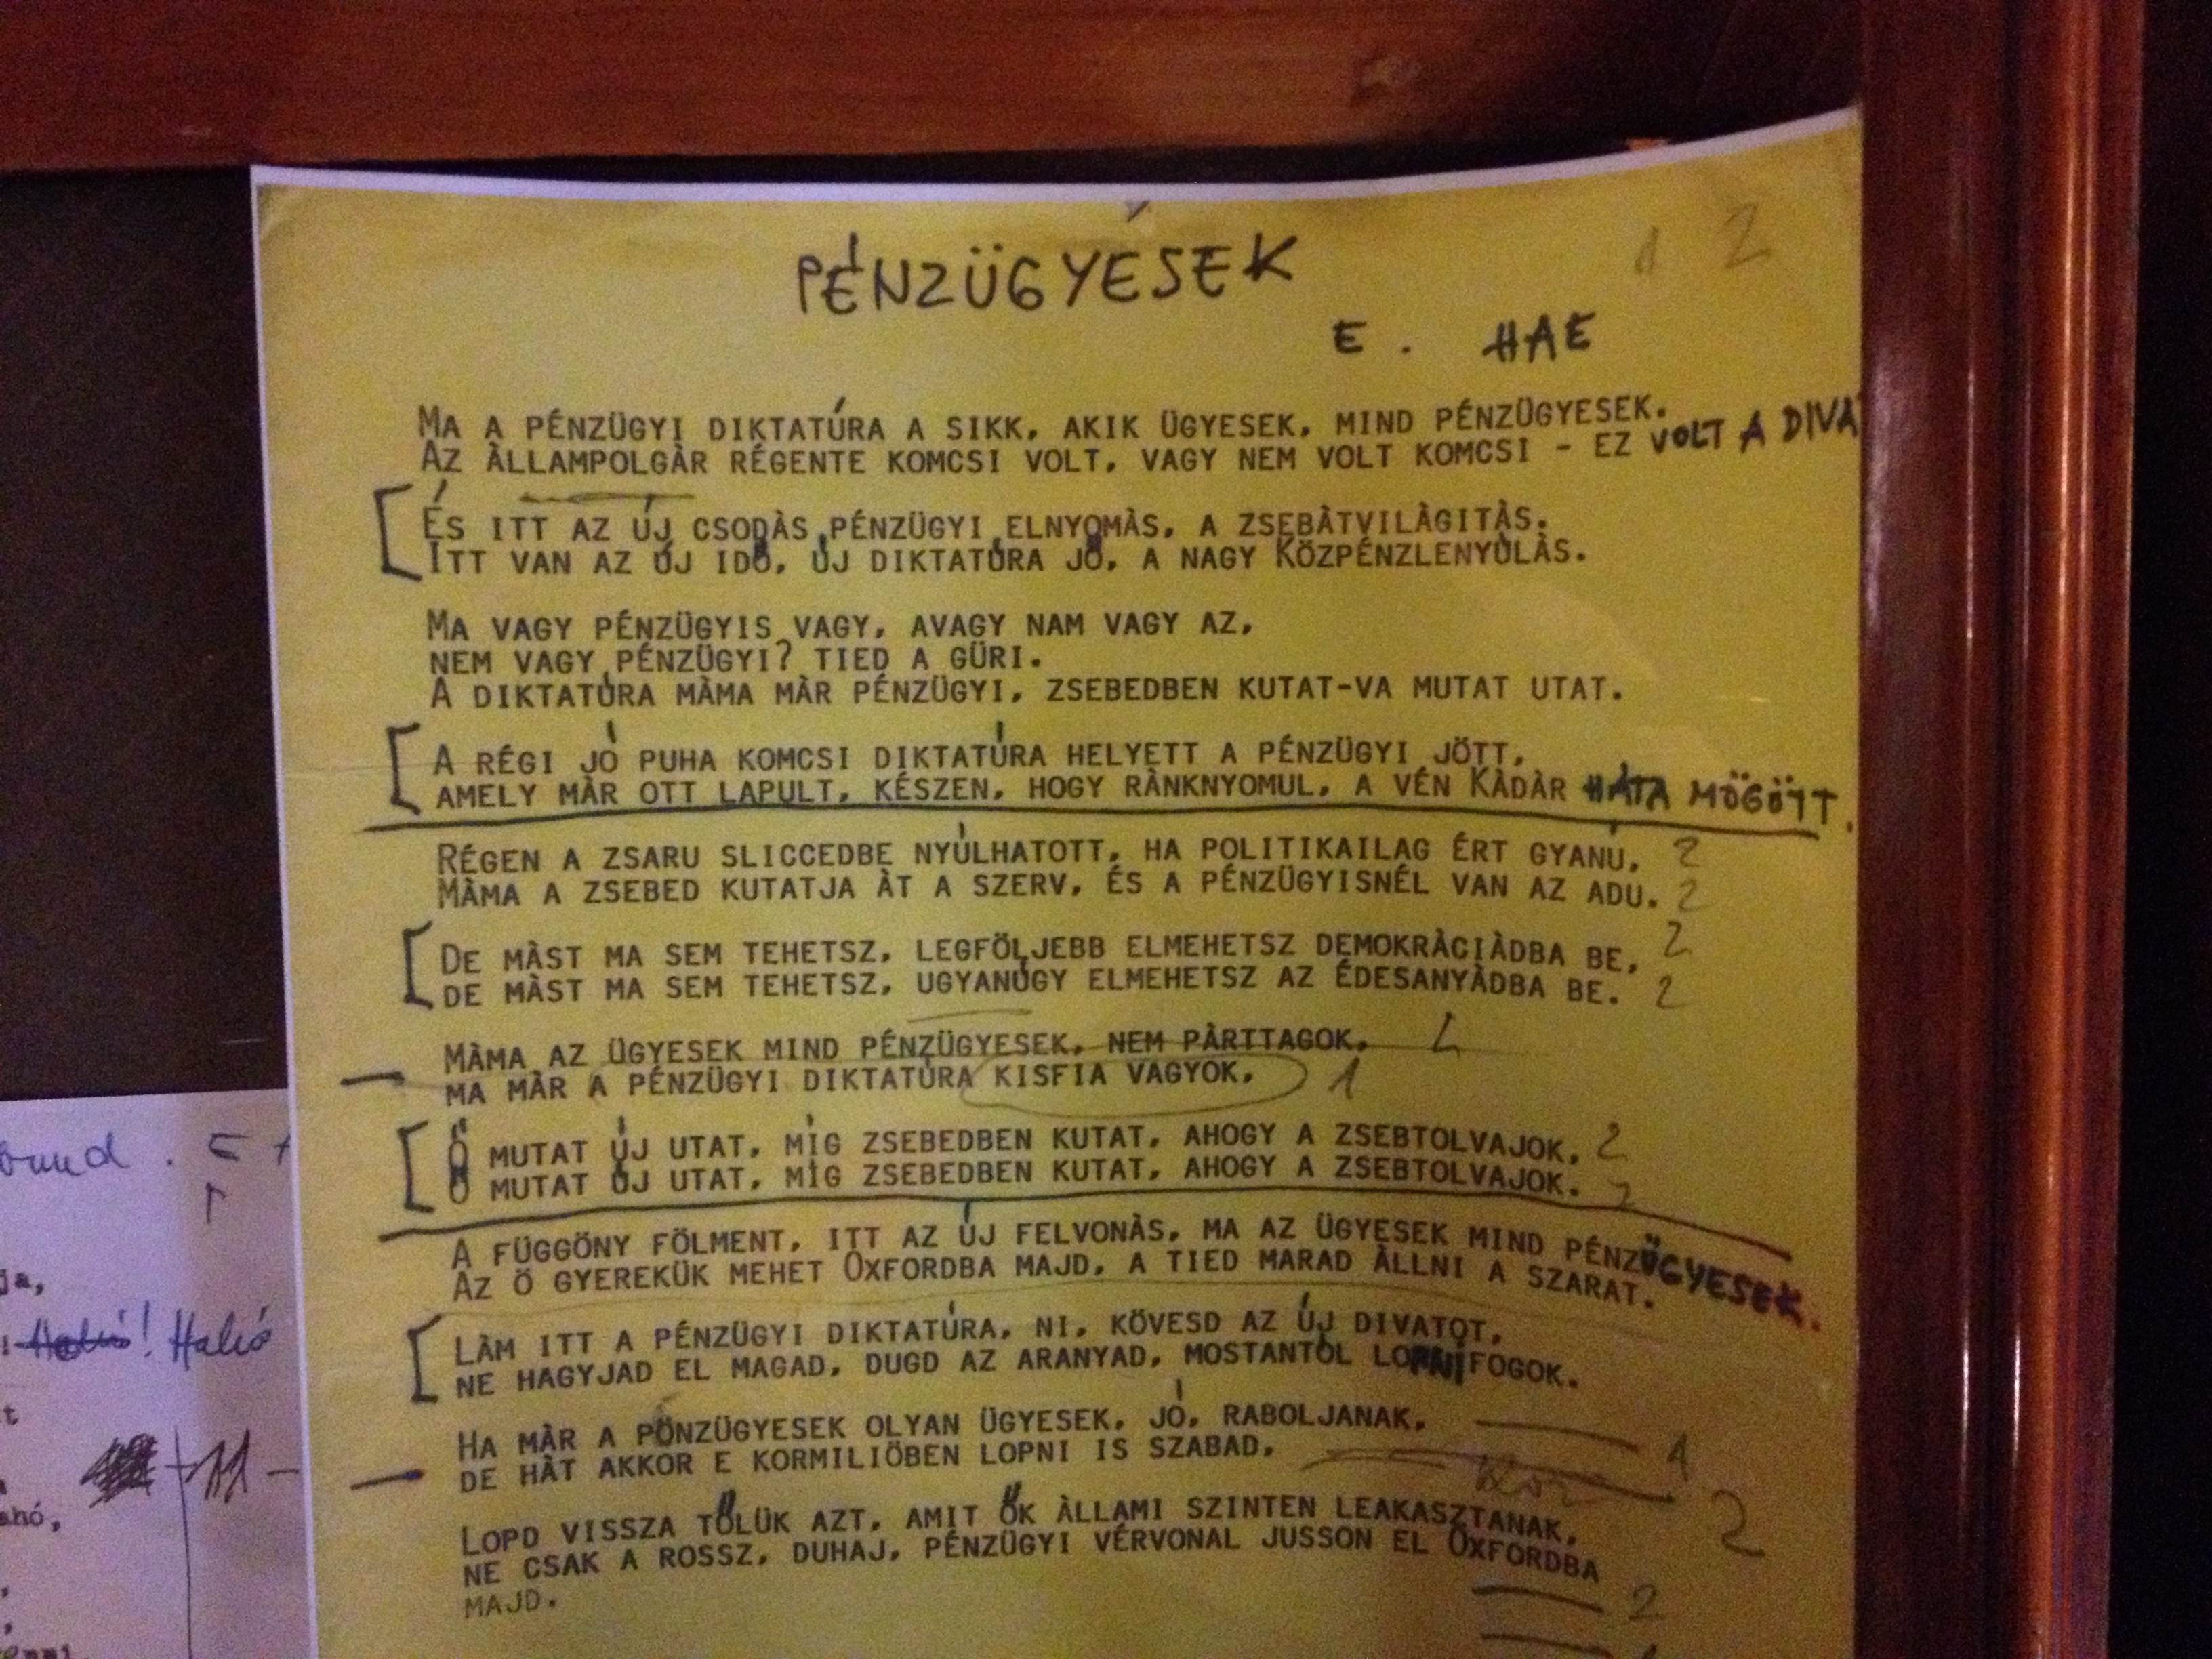 PÉNZÜGYESEK
1 2
E. HAE
MA A PÉNZÜGYI DIKTATÚRA A SIKK, AKIK ÜGYESEK, MIND PÉNZÜGYESEK.
AZ ÀLLAMPOLGÀR RÉGENTE KOMCSI VOLT, VAGY NEM VOLT KOMCSI - EZ VOLT A DIVA
ÉS ITT AZ ÚJ CSODÀS PÉNZÜGYI ELNYOMÀS, A ZSEBÀTVILÀGITÀS.
ITT VAN AZ ÚJ IDŐ, ÚJ DIKTATÚRA JŐ, A NAGY KÖZPÉNZLENYÙLÀS.
MA VAGY PÉNZÜGYIS VAGY, AVAGY NAM VAGY AZ,
NEM VAGY PÉNZÜGYI? TIED A GÜRI.
A DIKTATÚRA MÀMA MÀR PÉNZÜGYI, ZSEBEDBEN KUTAT-VA MUTAT UTAT.
A RÉGI JÓ PUHA KOMCSI DIKTATÚRA HELYETT A PÉNZÜGYI JÖTT,
AMELY MÀR OTT LAPULT, KÉSZEN, HOGY RÀNKNYOMUL, A VÉN KÀDÀR HÁTA MÖGÖTT.
RÉGEN A ZSARU SLICCEDBE NYÚLHATOTT, HA POLITIKAILAG ÉRT GYANÚ, 2
MÀMA A ZSEBED KUTATJA ÀT A SZERV, ÉS A PÉNZÜGYISNÉL VAN AZ ADU. 2
DE MÀST MA SEM TEHETSZ, LEGFÖLJEBB ELMEHETSZ DEMOKRÀCIÀDBA BE, 2
DE MÀST MA SEM TEHETSZ, UGYANÚGY ELMEHETSZ AZ ÉDESANYÀDBA BE. 2
MÀMA AZ ÜGYESEK MIND PÉNZÜGYESEK, NEM PÀRTTAGOK,
MA MÀR A PÉNZÜGYI DIKTATÚRA KISFIA VAGYOK, 1
Ő MUTAT ÚJ UTAT, MÍG ZSEBEDBEN KUTAT, AHOGY A ZSEBTOLVAJOK, 2
Ő MUTAT ÚJ UTAT, MÍG ZSEBEDBEN KUTAT, AHOGY A ZSEBTOLVAJOK. 2
A FÜGGÖNY FÖLMENT, ITT AZ ÚJ FELVONÀS, MA AZ ÜGYESEK MIND PÉNZÜGYESEK.
AZ Ö GYEREKÜK MEHET OXFORDBA MAJD, A TIED MARAD ÀLLNI A SZARAT.
LÀM ITT A PÉNZÜGYI DIKTATÚRA, NI, KÖVESD AZ ÚJ DIVATOT,
NE HAGYJAD EL MAGAD, DUGD AZ ARANYAD, MOSTANTÓL LOPNI FOGOK.
HA MÀR A PÖNZÜGYESEK OLYAN ÜGYESEK, JÓ, RABOLJANAK, 1
DE HÀT AKKOR E KORMILIÖBEN LOPNI IS SZABAD,
LOPD VISSZA TŐLÜK AZT, AMIT ŐK ÀLLAMI SZINTEN LEAKASZTANAK, 2
NE CSAK A ROSSZ, DUHAJ, PÉNZÜGYI VÉRVONAL JUSSON EL OXFORDBA
MAJD. 2
ja,
! Halió
t
ahó,